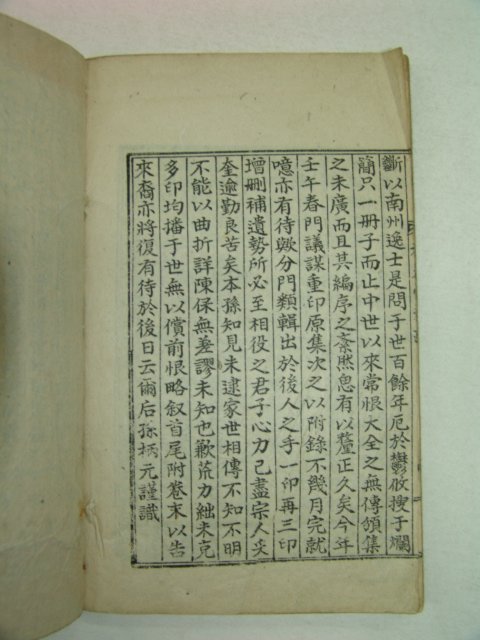 斷以南州逸士是問于世百餘年厄於鬱攸搜于爛
簡只一冊子而止中世以來常恨大全之無傳領集
之未廣而且其編序之紊然思有以釐正久矣今年
壬午春門議謀重印原集次之以附錄不幾月完就
噫亦有待歟分門類輯出於後人之手一印再三印
增刪補遺勢所必至相役之君子心力已盡宗人炎
奎逾勤良苦矣本孫知見未逮家世相傳不知不明
不能以曲折詳陳保無差謬未知也歉荒力絀未克
多印均播于世無以償前恨略叙首尾附卷末以告
來裔亦將復有待於後日云爾后孫柄元謹識